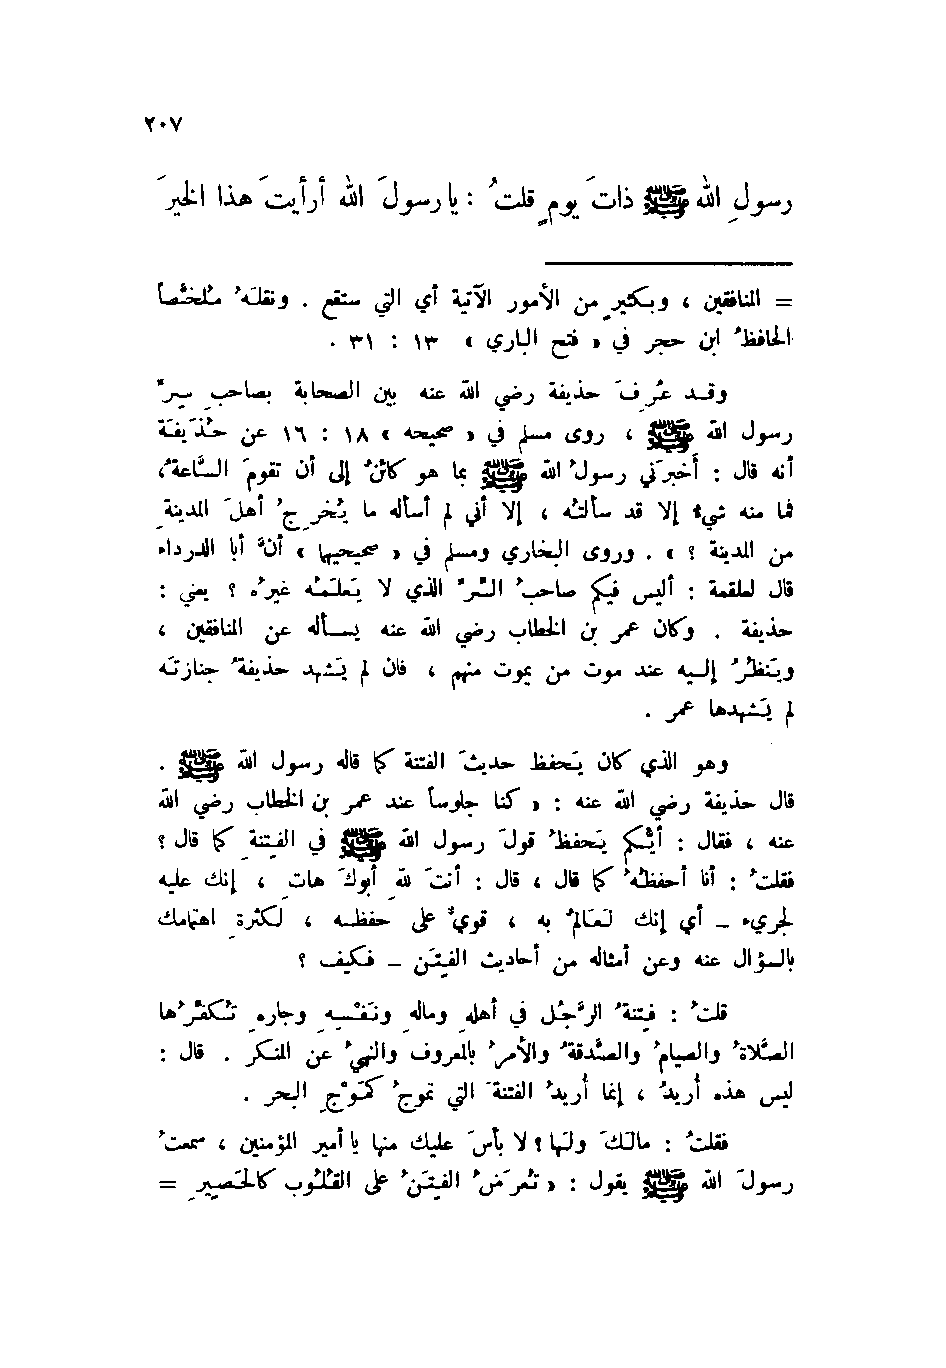 ٢٠٧
رسولِ الله ﷺ ذاتَ يومٍ قلتُ : يا رسولَ الله أرأيتَ هذا الخيرَ
= المنافقين ، وبكثيرٍ من الأمور الآتية أي التي ستقع . ونقلَهُ مُلخَّصاً
الحافظُ ابن حجر في « فتح الباري » ١٣ : ٣١ .
وقد عُرِفَ حذيفة رضي الله عنه بين الصحابة بصاحبِ سِرِّ
رسول الله ﷺ ، روى مسلم في « صحيحه » ١٨ : ١٦ عن حُذَيفَة
أنه قال : أخبرَني رسولُ الله ﷺ بما هو كائنٌ إلى أن تقومَ السَّاعةُ،
فما منه شيءٌ إلا قد سألتُه ، إلا أني لم أسأله ما يُخرِجُ أهلَ المدينةِ
من المدينة ؟ » . وروى البخاري ومسلم في « صحيحيهما » أنَّ أبا الدرداء
قال لعلقمة : أليس فيكم صاحبُ السِّرِّ الذي لا يَعلَمُه غيرُه ؟ يعني :
حذيفة . وكان عمر بن الخطاب رضي الله عنه يسأله عن المنافقين ،
ويَنظُرُ إليه عند موت من يموت منهم ، فان لم يَشهد حذيفةُ جنازتَه
لم يَشهدها عمر .
وهو الذي كان يَحفظ حديثَ الفتنة كما قاله رسول الله ﷺ .
قال حذيفة رضي الله عنه : « كنا جلوساً عند عمر بن الخطاب رضي الله
عنه ، فقال : أيُّكم يَحفظُ قولَ رسول الله ﷺ في الفِتنةِ كما قال ؟
فقلتُ : أنا أحفظُهُ كما قال ، قال : أنتَ لِلّهِ أبوكَ هاتِ ، إنك عليه
لجريء – أي إنك لَعالمٌ به ، قويٌّ على حفظه ، لكثرةِ اهتمامك
بالسؤال عنه وعن أمثاله من أحاديث الفِتَن – فكيف ؟
قلتُ : فِتنةُ الرَّجُل في أهلِهِ ومالِهِ ونَفْسِهِ وجارِهِ تُكفِّرُها
الصَّلاةُ والصيامُ والصَّدقةُ والأمرُ بالمعروف والنهيُ عن المنكر . قال :
ليس هذه أُريدُ ، إنما أُريدُ الفتنةَ التي تموجُ كَمَوْجِ البحر .
فقلتُ : مالَكَ ولها ؟ لا بأسَ عليك منها يا أمير المؤمنين ، سمعتُ
رسولَ الله ﷺ يقول : « تُعرَضُ الفِتَنُ على القُلُوب كالحَصيرِ =